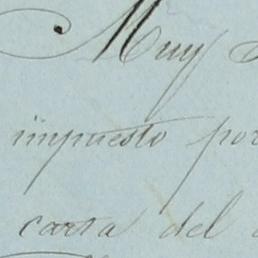 Muy
impuesto por
carta del